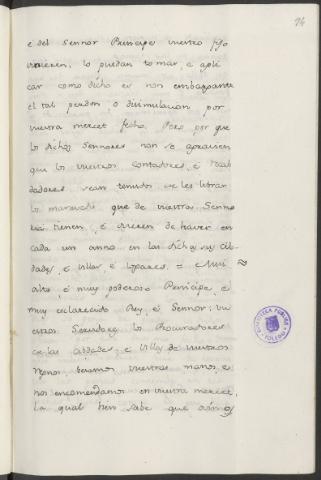 76
e del Sennor Principe vuestro fijo
tovieren, lo puedan tomar, e apli
car como dicho es non embargante
el tal perdon, o disimulacion por
vuestra mercet fecha. Pero por que
los dichos Sennores non se agravien
que los vuestros contadores, e
dadores sean tenudos de les librar
los maravedis que de vuestra Senno
ria tienen, é ovieren de haver en
cada un anno en las dichas sus cib
dades, é villas, é logares. = Mui
alto, é muy poderoso Principe, é
muy esclarecido Rey, é Sennor: vu
estros Servidores los Procuradores
de las cibdades, e villas de vuestros
regnos, besamos vuestras manos, e
nos encomendamos en vuestra mercet,
la qual bien sabe que
BIBLIOTECA PUBLICA
TOLEDO